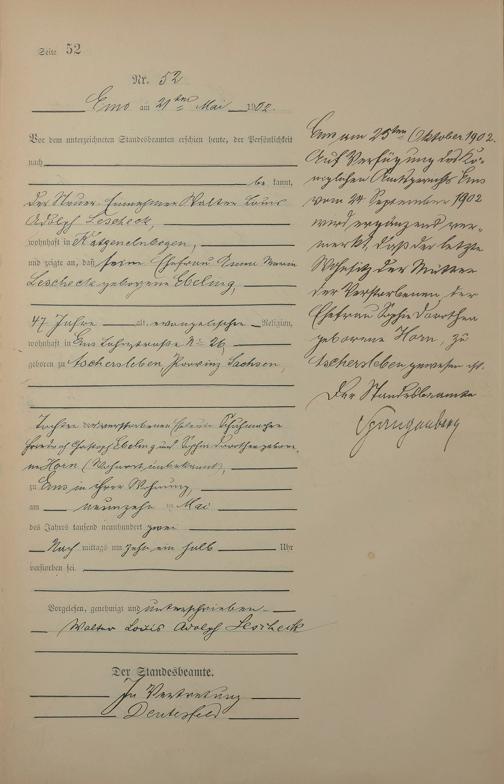 Seite 52
Nr. 52
Ems am 21ten Mai 1902.
Vor dem unterzeichneten Standesbeamten erschien heute, der Persönlichkeit
nach
be kannt,
der Steuer-Einnehmer Walter Louis
Adolph Lescheck,
wohnhaft in Katzenelnbogen,
und zeigte an, daß seine Ehefrau Emma Marie
Lescheck geborene Ebeling,
47 Jahre alt, evangelischer Religion,
wohnhaft in Ems Lahnstraße No 26,
geboren zu Aschersleben, Provinz Sachsen,
Tochter der verstorbenen Eheleute Schuhmacher
Friedrich Christoph Ebeling und Sophie Dorothea gebore-
ne Horn (Wohnort unbekannt),
zu Ems in ihrer Wohnung,
am neunzehn ten Mai
des Jahres tausend neunhundert zwei
Nach mittags um zehn ein halb Uhr
verstorben sei.
Vorgelesen, genehmigt und unterschrieben
Walter Louis Adolph Lescheck
Der Standesbeamte.
In Vertretung
Ems am 25ten Oktober 1902.
Auf Verfügung des Kö-
niglichen Amtsgerichts Ems
vom 24 September 1902
wird ergänzend ver-
merkt, daß der letzte
Wohnsitz der Mutter
der Verstorbenen, der
Ehefrau Sophie Dorothea
geborene Horn, zu
Aschersleben gewesen ist.
Der Standesbeamte
Spangenberg